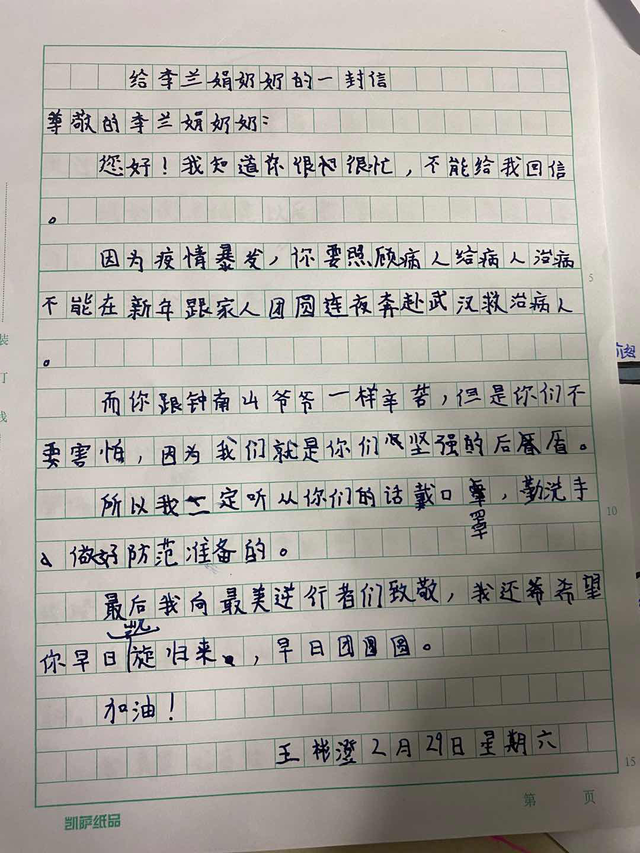 给李兰娟奶奶的一封信
尊敬的李兰娟奶奶:
您好！我知道你很很忙，不能给我回信
。
因为疫情暴发，你要照顾病人给病人治病
不能在新年跟家人团圆连夜奔赴武汉救治病人
。
而你跟钟南山爷爷一样辛苦，但是你们不
要害怕，因为我们就是你们坚强的后盾。
所以我一定听从你们的话戴口罩，勤洗手
、做好防范准备的。
最后我向最美逆行者们致敬，我还希望
你早日凯旋归来，早日团圆。
加油！
王彬澄2月29日星期六
凯萨纸品
第 页
5
10
15
装
订
线